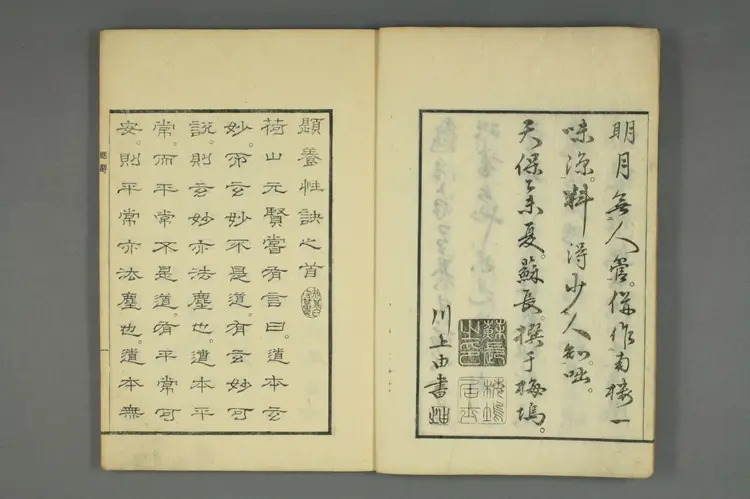 明月無人管。併作南樓一
味涼。料得少人知。咄。
天保夏。蘇長撰于梅塢。
蘇長之印
梅塢居士
川上由書
題養性訣之首
荷山元賢嘗有言曰。道本玄
妙。而玄妙不是道。有玄妙可
說。則玄妙亦法塵也。道本平
常。而平常不是道。有平常可
安。則平常亦法塵也。道本無
題辭
一